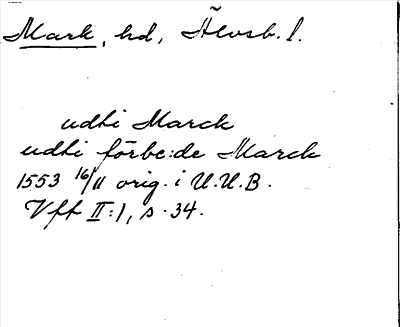 Mark, hd, Älvsb. l.
udhi Marck
udhi förbe:de Marck
1553 16/11 orig. i U.U.B.
Vft II:1, s. 34.